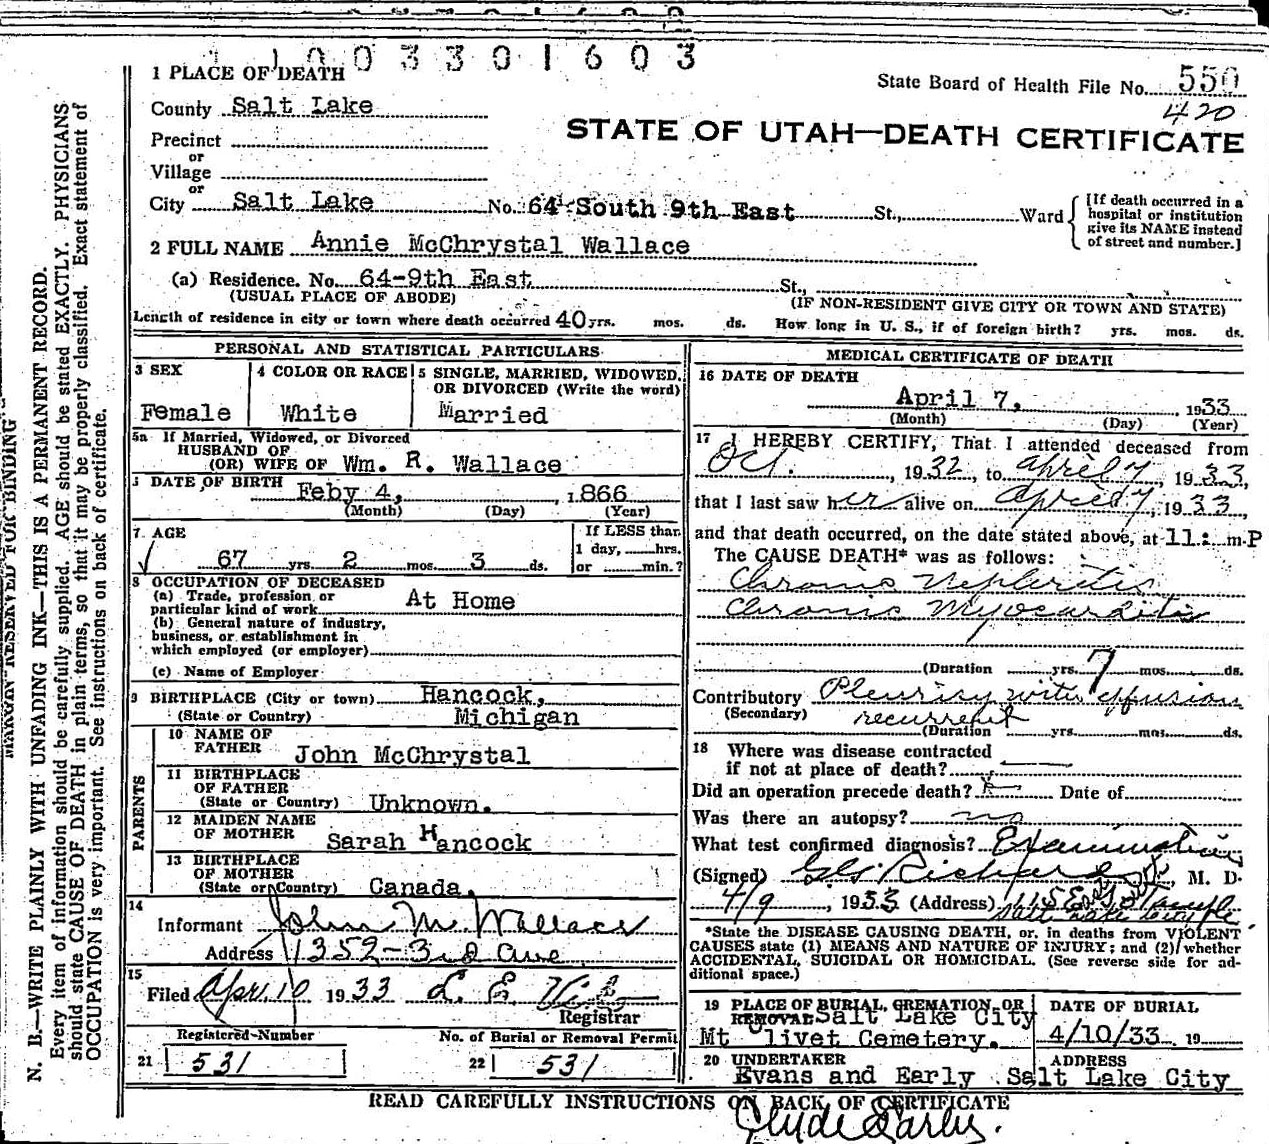 1003301603
State Board of Health File No. 550
420
STATE OF UTAH—DEATH CERTIFICATE
1 PLACE OF DEATH
County Salt Lake
Precinct
or
Village
or
City Salt Lake No. 64 South 9th East St., Ward
[If death occurred in a
hospital or institution
give its NAME instead
of street and number.]
2 FULL NAME Annie McChrystal Wallace
(a) Residence. No. 64-9th East St.,
(USUAL PLACE OF ABODE) (IF NON-RESIDENT GIVE CITY OR TOWN AND STATE)
Length of residence in city or town where death occurred 40 yrs. mos. ds. How long in U. S., if of foreign birth? yrs. mos. ds.
PERSONAL AND STATISTICAL PARTICULARS
3 SEX
Female
4 COLOR OR RACE
White
5 SINGLE, MARRIED, WIDOWED,
OR DIVORCED (Write the word)
Married
5a If Married, Widowed, or Divorced
HUSBAND OF
(OR) WIFE OF Wm. R. Wallace
DATE OF BIRTH Feby 4, 1866
(Month) (Day) (Year)
7 AGE
67 yrs. 2 mos. 3 ds.
If LESS than
1 day, hrs.
or min.?
8 OCCUPATION OF DECEASED
(a) Trade, profession or
particular kind of work At Home
(b) General nature of industry,
business, or establishment in
which employed (or employer)
(c) Name of Employer
9 BIRTHPLACE (City or town) Hancock,
(State or Country) Michigan
PARENTS
10 NAME OF
FATHER John McChrystal
11 BIRTHPLACE
OF FATHER
(State or Country) Unknown.
12 MAIDEN NAME
OF MOTHER Sarah Hancock
13 BIRTHPLACE
OF MOTHER
(State or Country) Canada.
14
Informant John M. Wallace
Address 1352-3rd Ave
15
Filed Apr. 10 1933 L. E.
Registrar
Registered Number
21 531
No. of Burial or Removal Permit
22 531
MEDICAL CERTIFICATE OF DEATH
16 DATE OF DEATH
April 7, 1933
(Month) (Day) (Year)
17 I HEREBY CERTIFY, That I attended deceased from
Oct. , 1932, to April 7, 1933,
that I last saw her alive on April 7, 1933,
and that death occurred, on the date stated above, at 11: m.P
The CAUSE DEATH* was as follows:
Chronic Nephritis
Chronic Myocarditis
(Duration yrs. 7 mos. ds.
Contributory Pleurisy with effusion
(Secondary) recurrent
(Duration yrs. mos. ds.
18 Where was disease contracted
if not at place of death?
Did an operation precede death? Date of
Was there an autopsy? no
What test confirmed diagnosis? Examination
(Signed) G. G. Richards, M. D.
4/9, 1933 (Address) 115 E. So. Temple
Salt Lake
*State the DISEASE CAUSING DEATH, or, in deaths from VIOLENT
CAUSES state (1) MEANS AND NATURE OF INJURY; and (2) whether
ACCIDENTAL, SUICIDAL OR HOMICIDAL. (See reverse side for ad-
ditional space.)
19 PLACE OF BURIAL, CREMATION, OR
REMOVAL Salt Lake City
Mt Olivet Cemetery.
DATE OF BURIAL
4/10/33 19
20 UNDERTAKER
Evans and Early
ADDRESS
Salt Lake City
READ CAREFULLY INSTRUCTIONS ON BACK OF CERTIFICATE
Clyde Early.
MARGIN RESERVED FOR BINDING
N. B.—WRITE PLAINLY WITH UNFADING INK—THIS IS A PERMANENT RECORD.
Every item of information should be carefully supplied. AGE should be stated EXACTLY. PHYSICIANS
should state CAUSE OF DEATH in plain terms, so that it may be properly classified. Exact statement of
OCCUPATION is very important. See instructions on back of certificate.